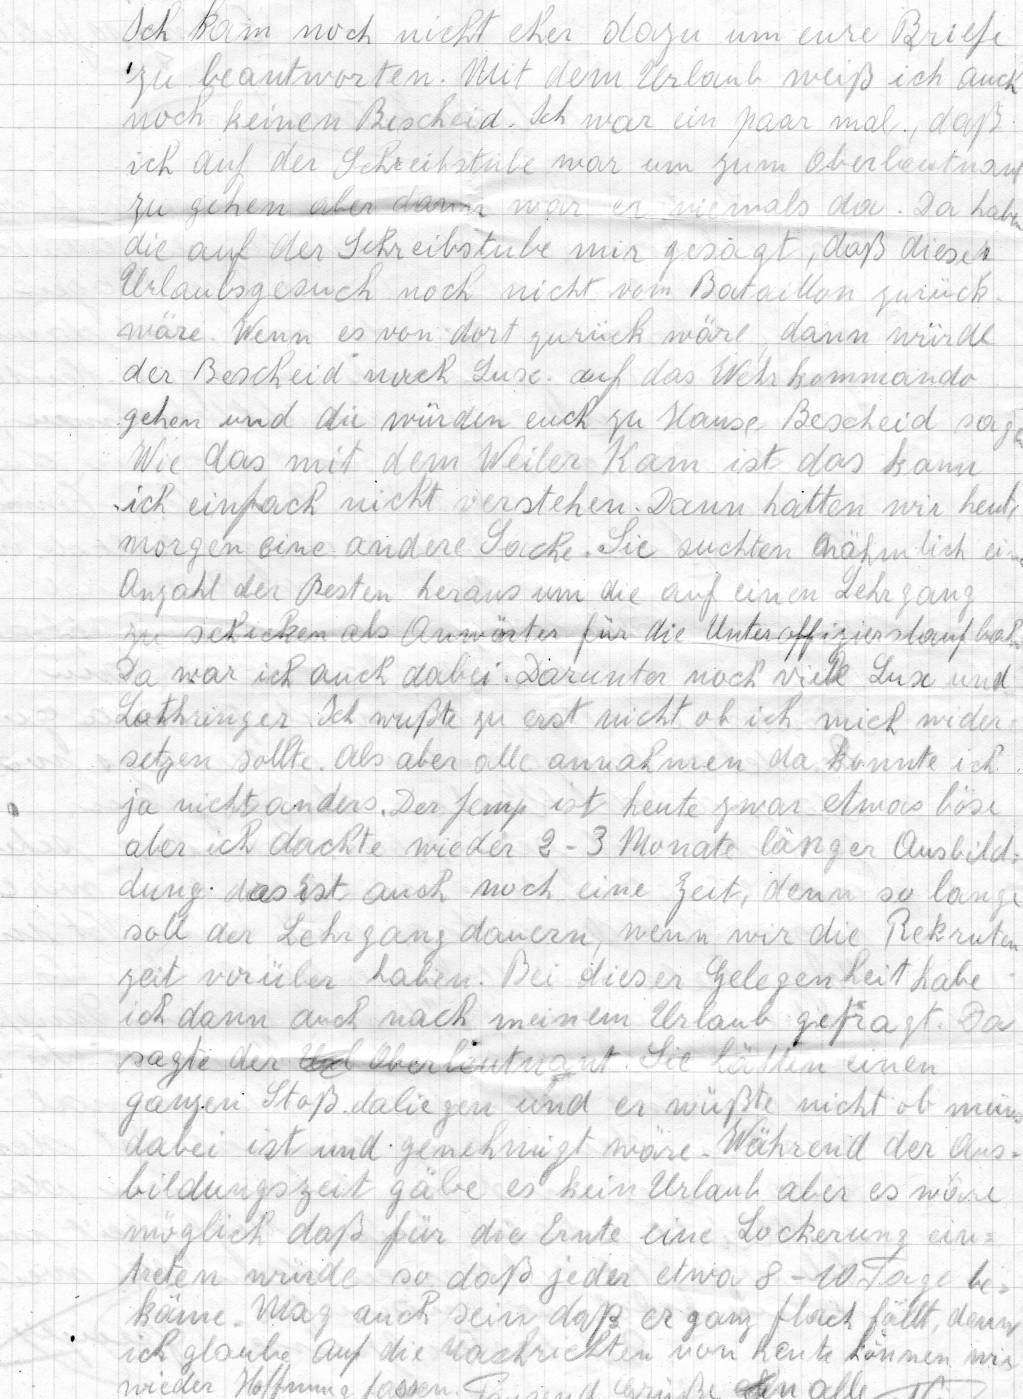 Ich kam noch nicht eher dazu um eure Briefe
zu beantworten. Mit dem Urlaub weiß ich auch
noch keinen Bescheid. Ich war ein paar mal, daß
ich auf der Schreibstube war um zum Oberleutnant
zu gehen aber dann war er niemals da. Da haben
die auf der Schreibstube mir gesagt, daß dieses
Urlaubsgesuch noch nicht vom Bataillon zurück
wäre. Wenn es von dort zurück wäre, dann würde
der Bescheid nach Lux. auf das Wehrkommando
gehen und die würden euch zu Hause Bescheid sagen
Wie das mit dem Weiler Kam ist das kann
ich einfach nicht verstehen. Dann hatten wir heut
morgen eine andere Sache. Sie suchten nähmlich eine
Anzahl der Besten heraus um die auf einen Lehrgang
zu schicken als Anwärter für die Unteroffizierslaufbahn
Da war ich auch dabei. Darunter noch viele Lux und
Lothringer. Ich wußte zu erst nicht ob ich mich wider
setzen sollte. Als aber alle annahmen da konnte ich
ja nichts anders. Der Jemp ist heute zwar etwas böse
aber ich dachte wieder 2-3 Monate länger Ausbild=
dung. das ist auch noch eine Zeit, denn so lange
soll der Lehrgang dauern, wenn wir die Rekruten
zeit vorüber haben. Bei dieser Gelegenheit habe
ich dann auch nach meinem Urlaub gefragt. Da
sagte der Oberleutnant. Sie hätten einen
ganzen Stoß daliegen und er wüßte nicht ob meins
dabei ist und genehmigt wäre. Während der Aus=
bildungszeit gäbe es kein Urlaub aber es wäre
möglich daß für die Ernte eine Lockerung ein=
treten würde so daß jeder etwa 8-10 Tage be=
käme. Mag auch sein daß er ganz flach fällt, denn
ich glaube auf die Nachrichten von heute können wir
wieder Hoffnung fassen. Tausend Grüße an alle